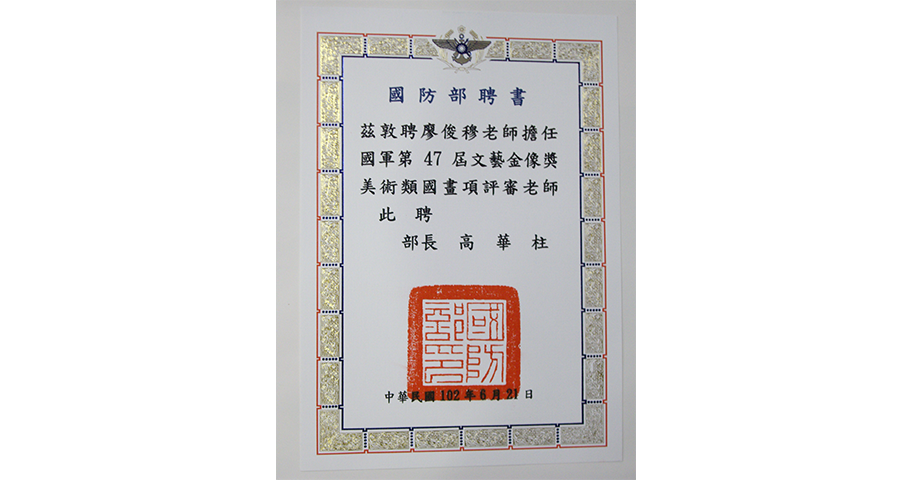 國防部聘書
茲敦聘廖俊穆老師擔任
國軍第 47 屆文藝金像獎
美術類國畫項評審老師
此聘
部長 高華柱
國防部印
中華民國 102 年 6 月 21 日